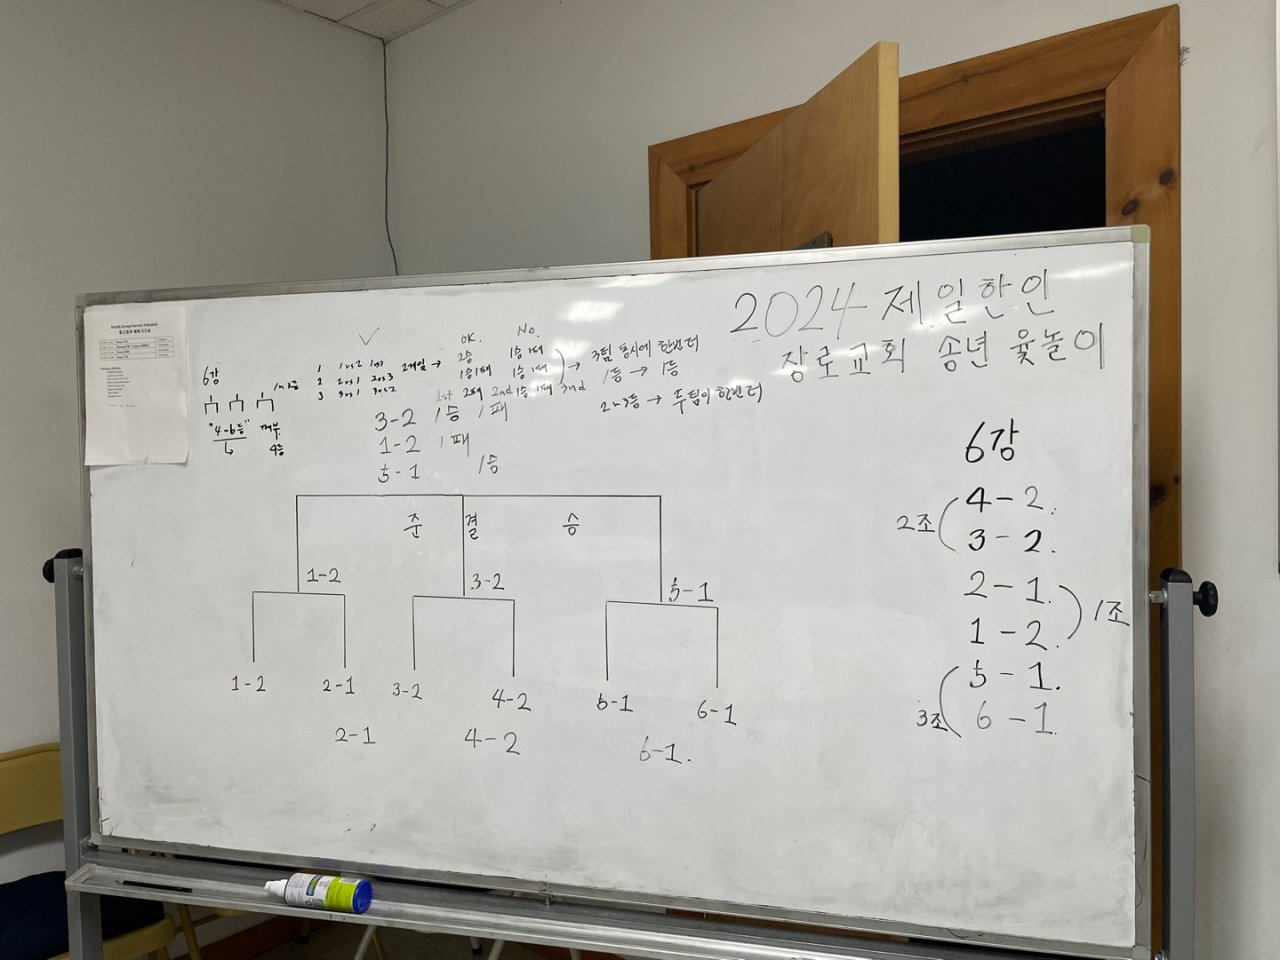 2024 제일한인
장로교회 송년 윷놀이
Youth Group Service Schedule
6강
"4~6등"
4등
OK.
No.
1 1vs2 1vs3
2 2vs1 2vs3
3 3vs1 3vs2
2게임 →
2승 1승 1패
1승1패 1승 1패
1st 2패 2nd 1승 1패 3nd
→ 3팀 동시에 한번더
1등 → 1등
2~3등 → 두팀이 한번더
3-2 1승 1패
1-2 1패
5-1 1승
준 결 승
1-2 3-2 5-1
1-2 2-1 3-2 4-2 5-1 6-1
2-1 4-2 6-1.
6강
2조 4-2.
3-2.
2-1. 1조
1-2.
5-1.
3조 6-1.